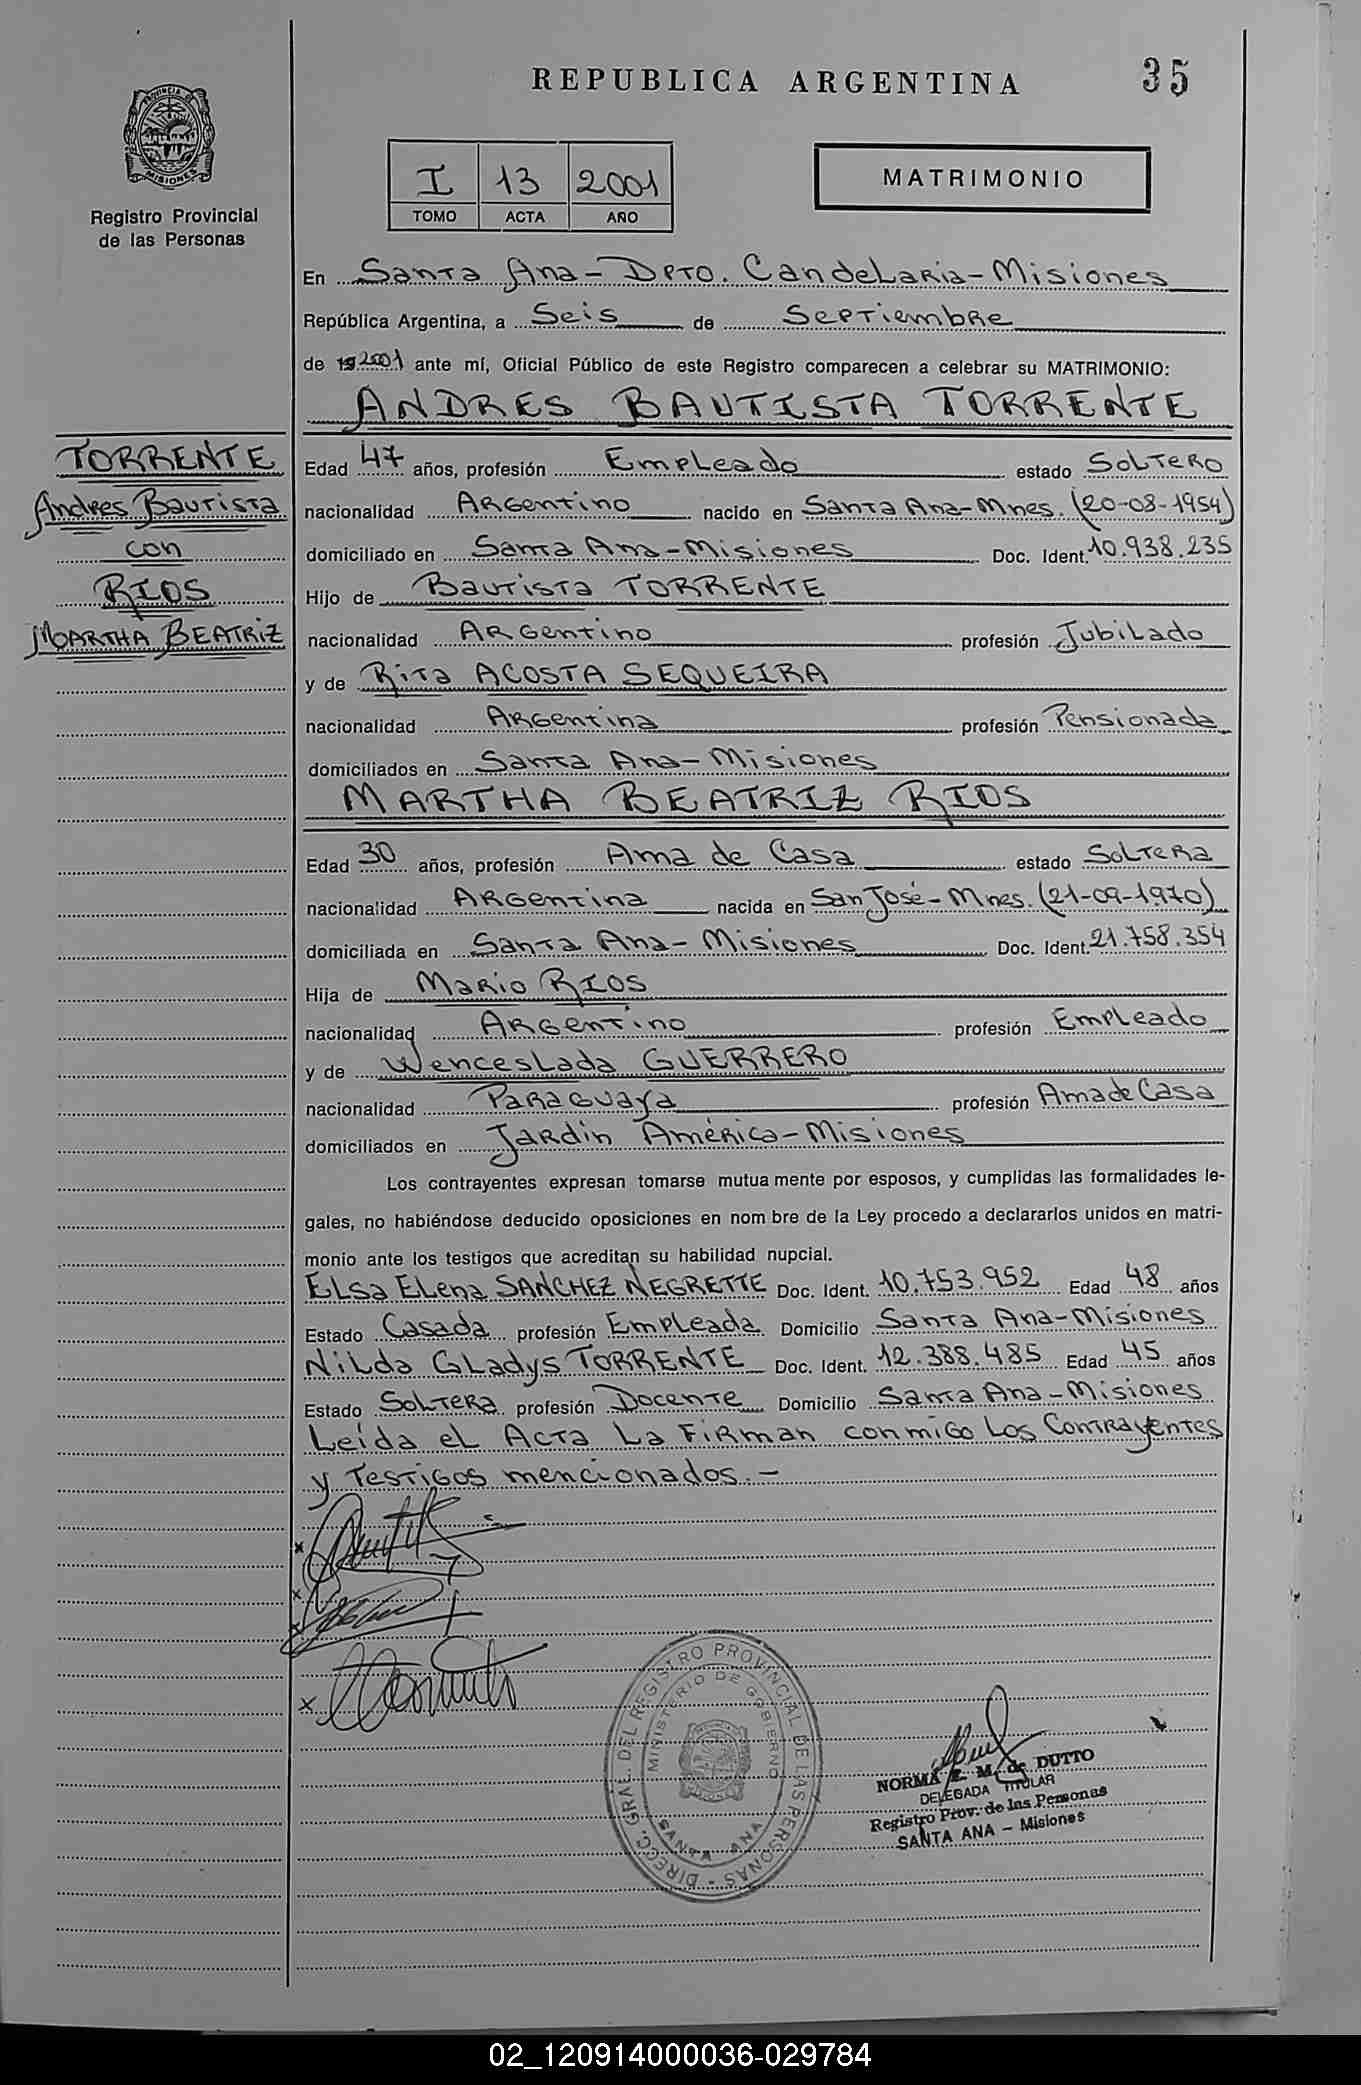 REPUBLICA ARGENTINA
35
PROVINCIA DE MISIONES
Registro Provincial
de las Personas
I 13 2001
TOMO ACTA AÑO
MATRIMONIO
En Santa Ana - Dpto. Candelaria - Misiones
República Argentina, a Seis de Septiembre
de 2001 ante mí, Oficial Público de este Registro comparecen a celebrar su MATRIMONIO:
ANDRES BAUTISTA TORRENTE
TORRENTE
Andres Bautista
con
RIOS
MARTHA BEATRIZ
Edad 47 años, profesión Empleado estado Soltero
nacionalidad Argentino nacido en Santa Ana - Mnes. (20-08-1954)
domiciliado en Santa Ana - Misiones Doc. Ident. 10.938.235
Hijo de Bautista TORRENTE
nacionalidad Argentino profesión Jubilado
y de Rita ACOSTA SEQUEIRA
nacionalidad Argentina profesión Pensionada
domiciliados en Santa Ana - Misiones
MARTHA BEATRIZ RIOS
Edad 30 años, profesión Ama de Casa estado Soltera
nacionalidad Argentina nacida en San José - Mnes. (21-09-1970)
domiciliada en Santa Ana - Misiones Doc. Ident. 21.758.354
Hija de Mario RIOS
nacionalidad Argentino profesión Empleado
y de Wenceslada GUERRERO
nacionalidad Paraguaya profesión Ama de Casa
domiciliados en Jardin América - Misiones
Los contrayentes expresan tomarse mutua mente por esposos, y cumplidas las formalidades le-
gales, no habiéndose deducido oposiciones en nom bre de la Ley procedo a declararlos unidos en matri-
monio ante los testigos que acreditan su habilidad nupcial.
Elsa Elena SANCHEZ NEGRETTE Doc. Ident. 10.753.952 Edad 48 años
Estado Casada profesión Empleada Domicilio Santa Ana - Misiones
Nilda Gladys TORRENTE Doc. Ident. 12.388.485 Edad 45 años
Estado Soltera profesión Docente Domicilio Santa Ana - Misiones
Leída el Acta La Firman conmigo Los Contrayentes
y Testigos mencionados. -
DIRECC. GRAL. DEL REGISTRO PROVINCIAL DE LAS PERSONAS
MINISTERIO DE GOBIERNO
SANTA ANA
NORMA E. M. de DUTTO
DELEGADA TITULAR
Registro Prov. de las Personas
SANTA ANA - Misiones
02_120914000036-029784